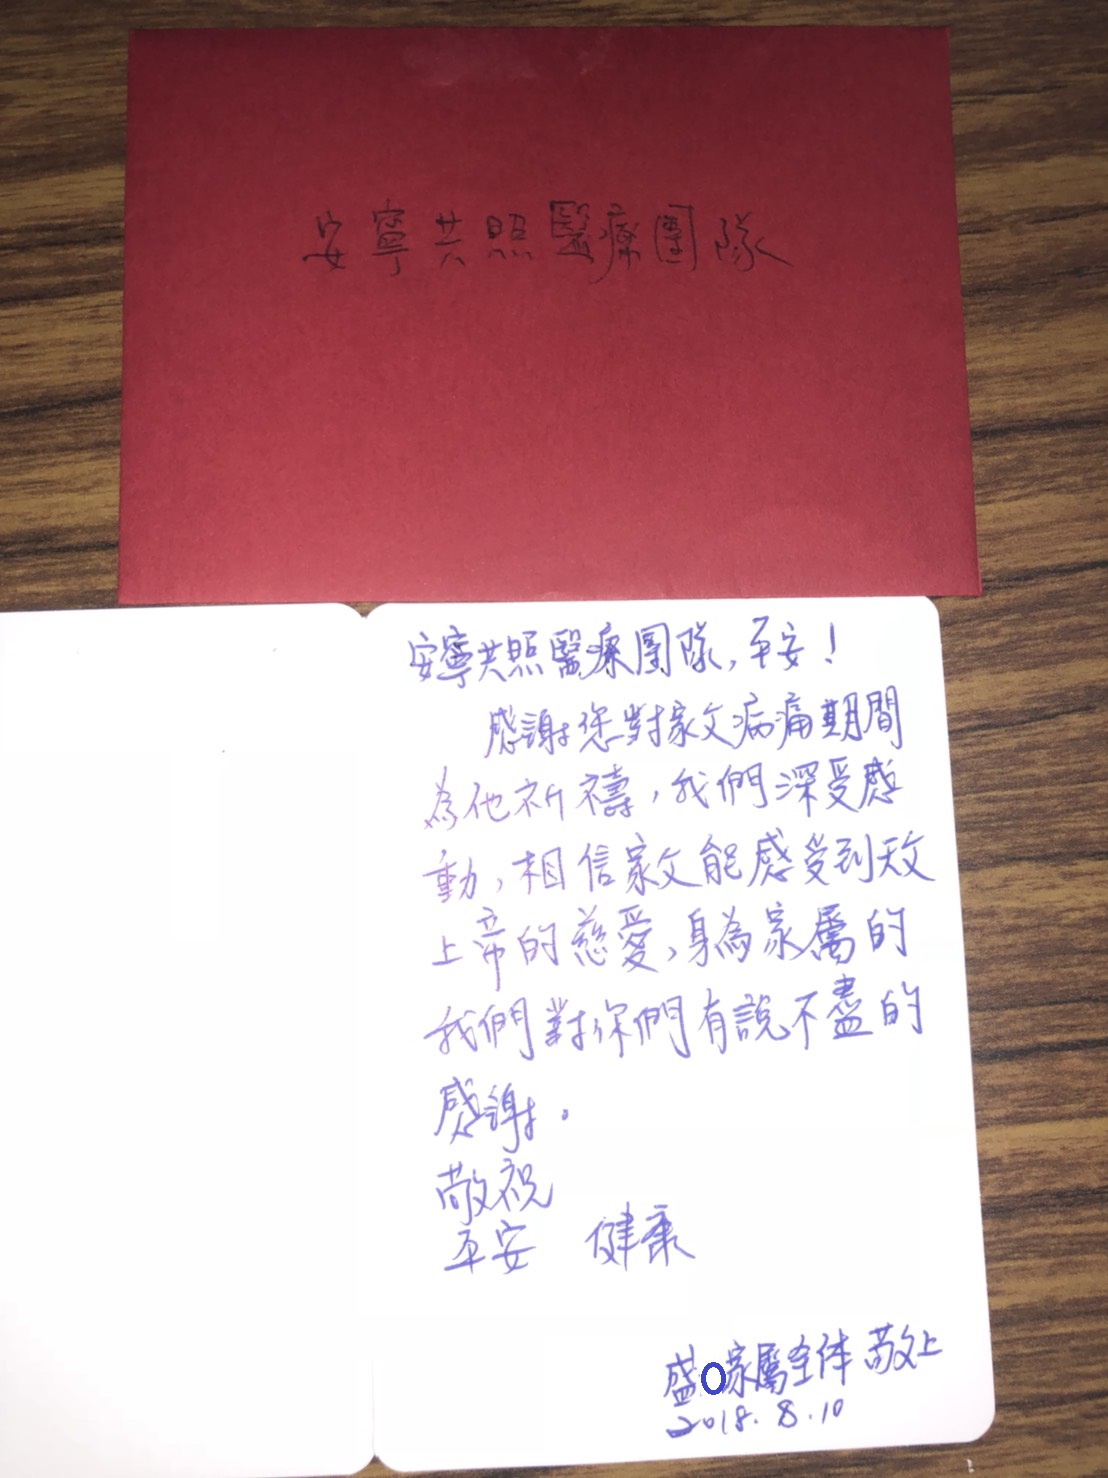 安寧共照醫療團隊
安寧共照醫療團隊,平安!
感謝您對家父病痛期間
為他祈禱,我們深受感
動,相信家父能感受到天父
上帝的慈愛,身為家屬的
我們對你們有說不盡的
感謝。
敬祝
平安 健康
盛O家屬全体 敬上
2018.8.10